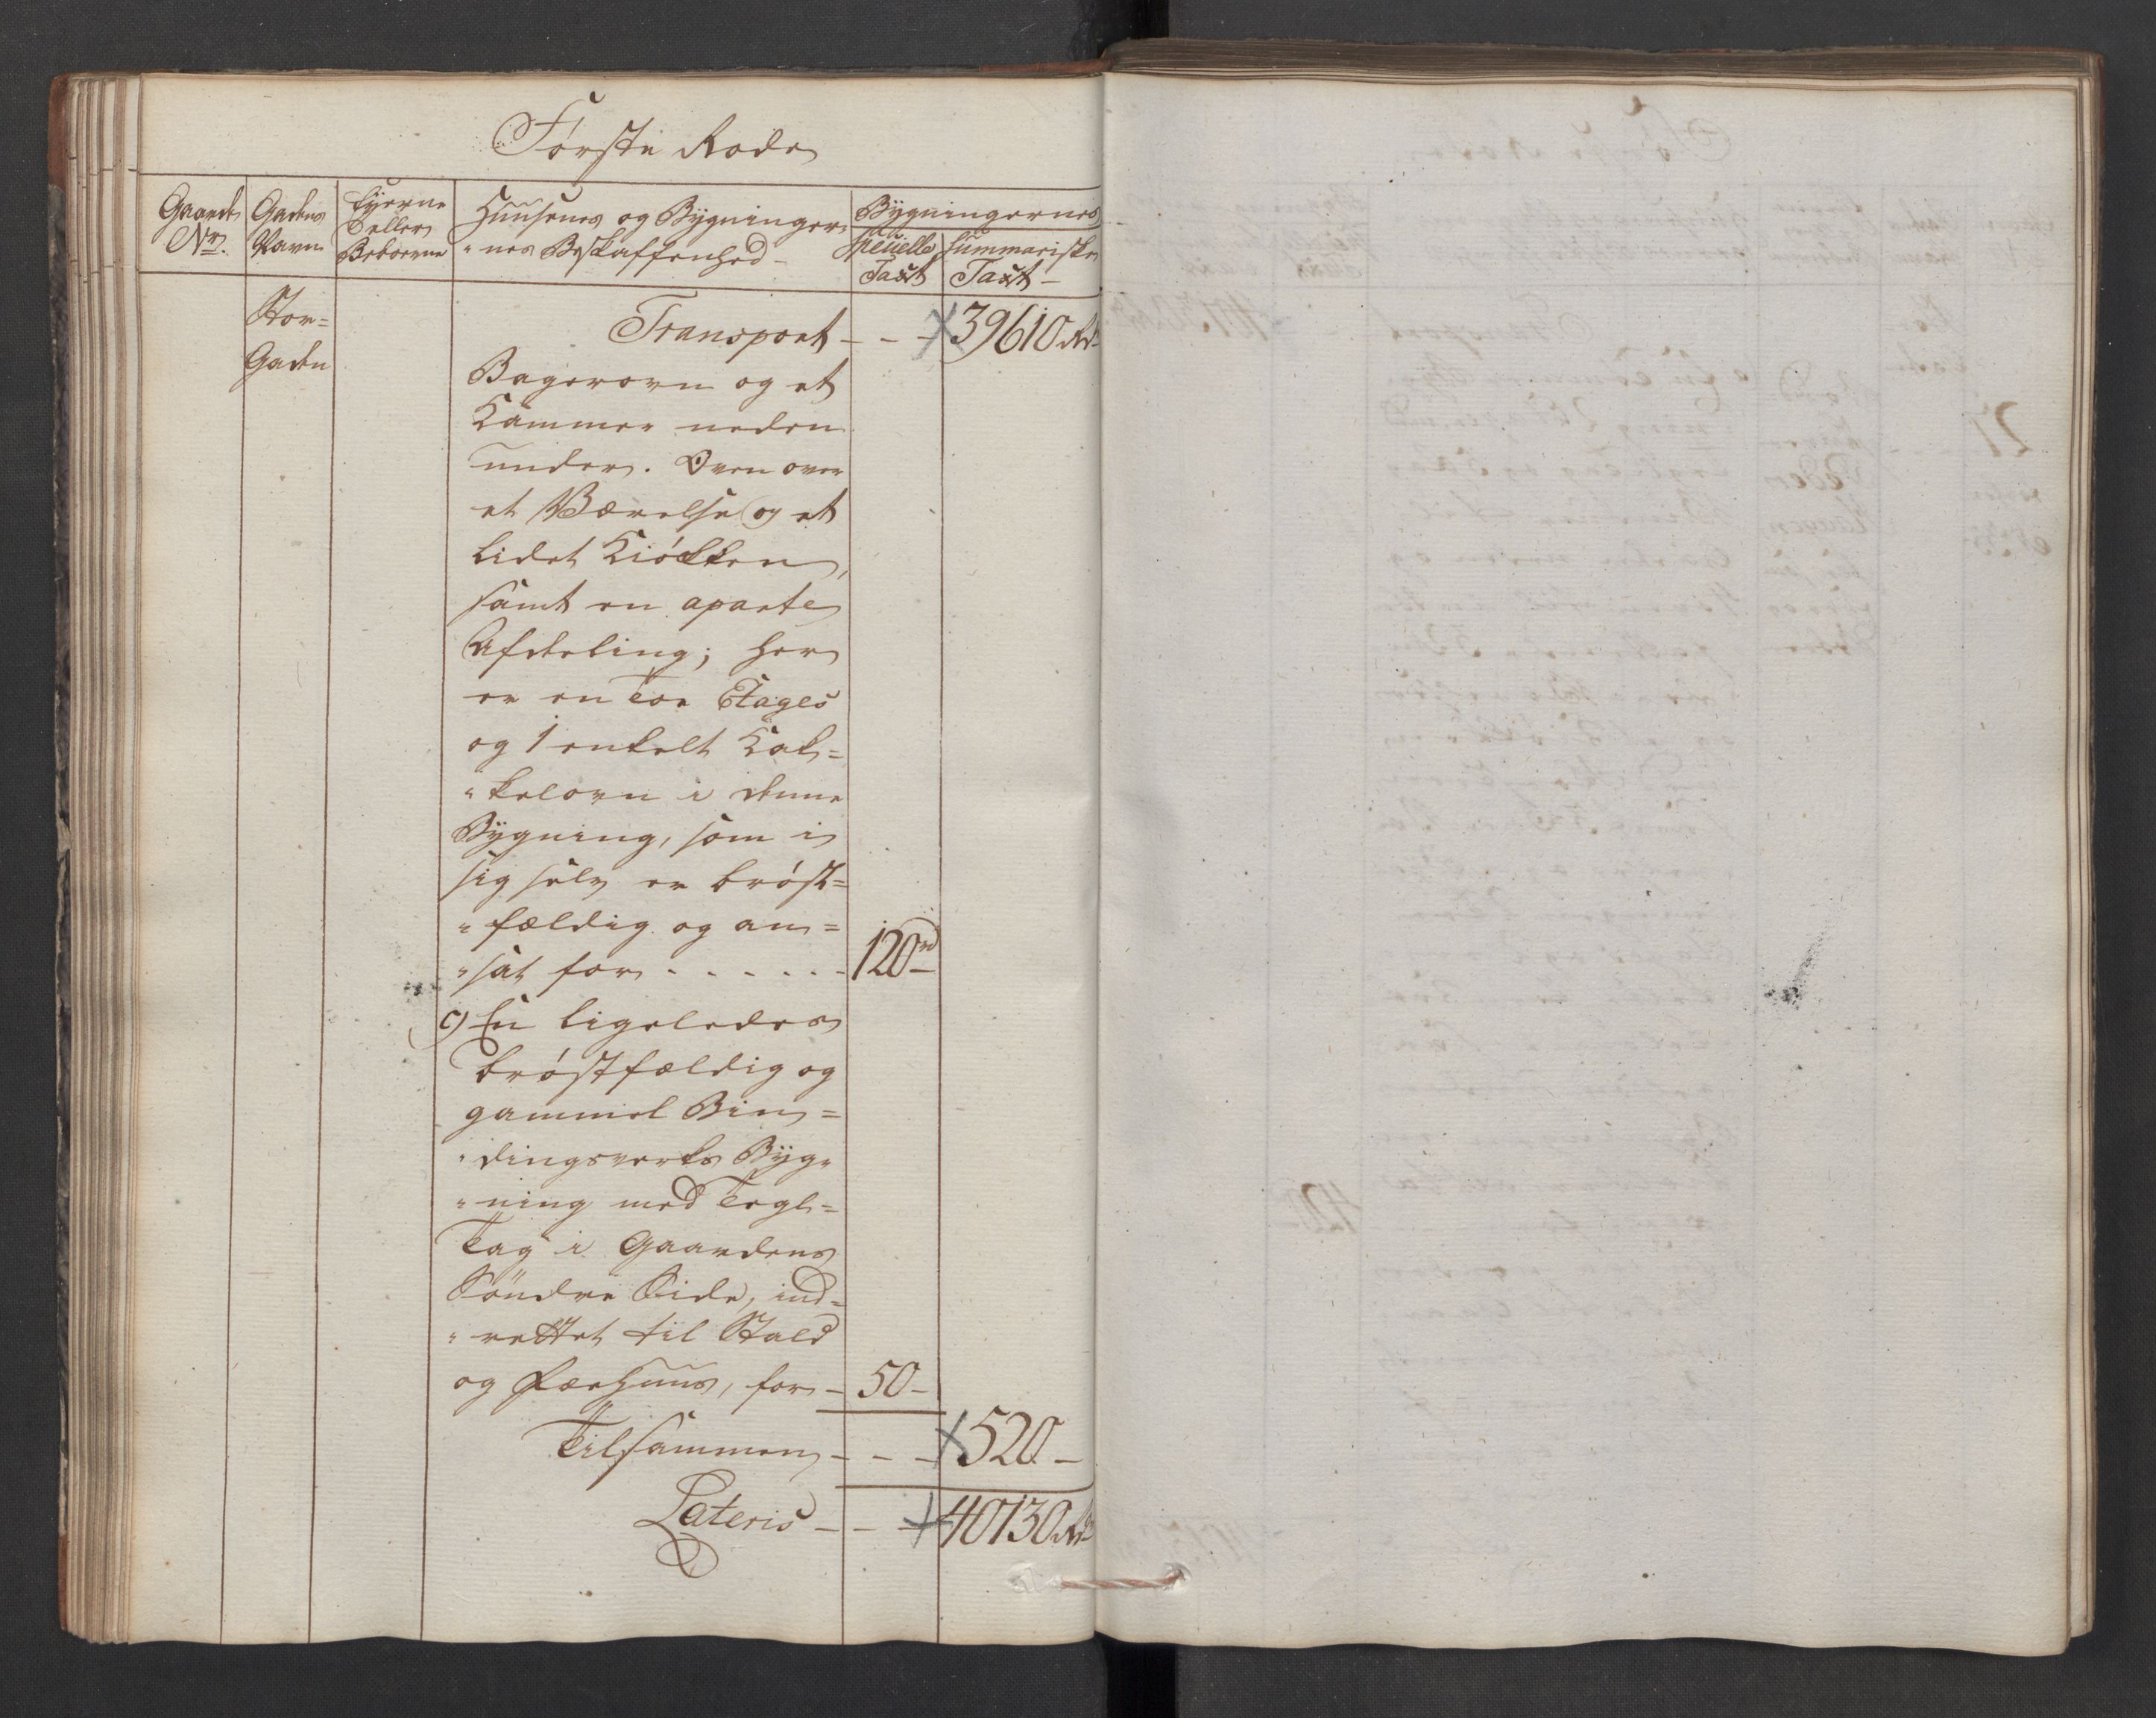 Første Rode
Gaards Nr.
Gadens Navn
Eyerne eller Beboerne
Huusenes og Bygninger
"nes Beskaffenhed -
Bygningernes
Specielle Taxt
summariske Taxt -
Stor=
Gaden
Transport - - - 39610 Rd
Bagerovn og et
Kammer neden
under. Oven over
et Værelse og et
lidet Kiökken,
samt en aparte
Afdeling; her
er en toe Etages
og 1 enkelt Kak=
"kelovn i denne
Bygning, som i
sig selv er bröst=
"fældig og an=
"sat for . . . . . - 120 rd -
c) En ligeledes
bröstfældig og
gammel Bin=
"dingsverks Byg=
"ning med Tegl=
Tag i Gaardens
Söndre Side, ind=
"rettet til Stald
og Færhuus, for - 50 -
Tilsammen - - - 520 -
Lateris - - - 40130 Rd